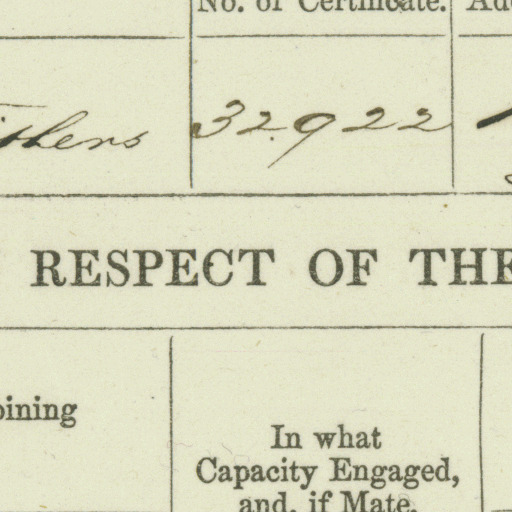 No. of Certificate.
32922
RESPECT OF THE
In what
Capacity Engaged,
and, if Mate,